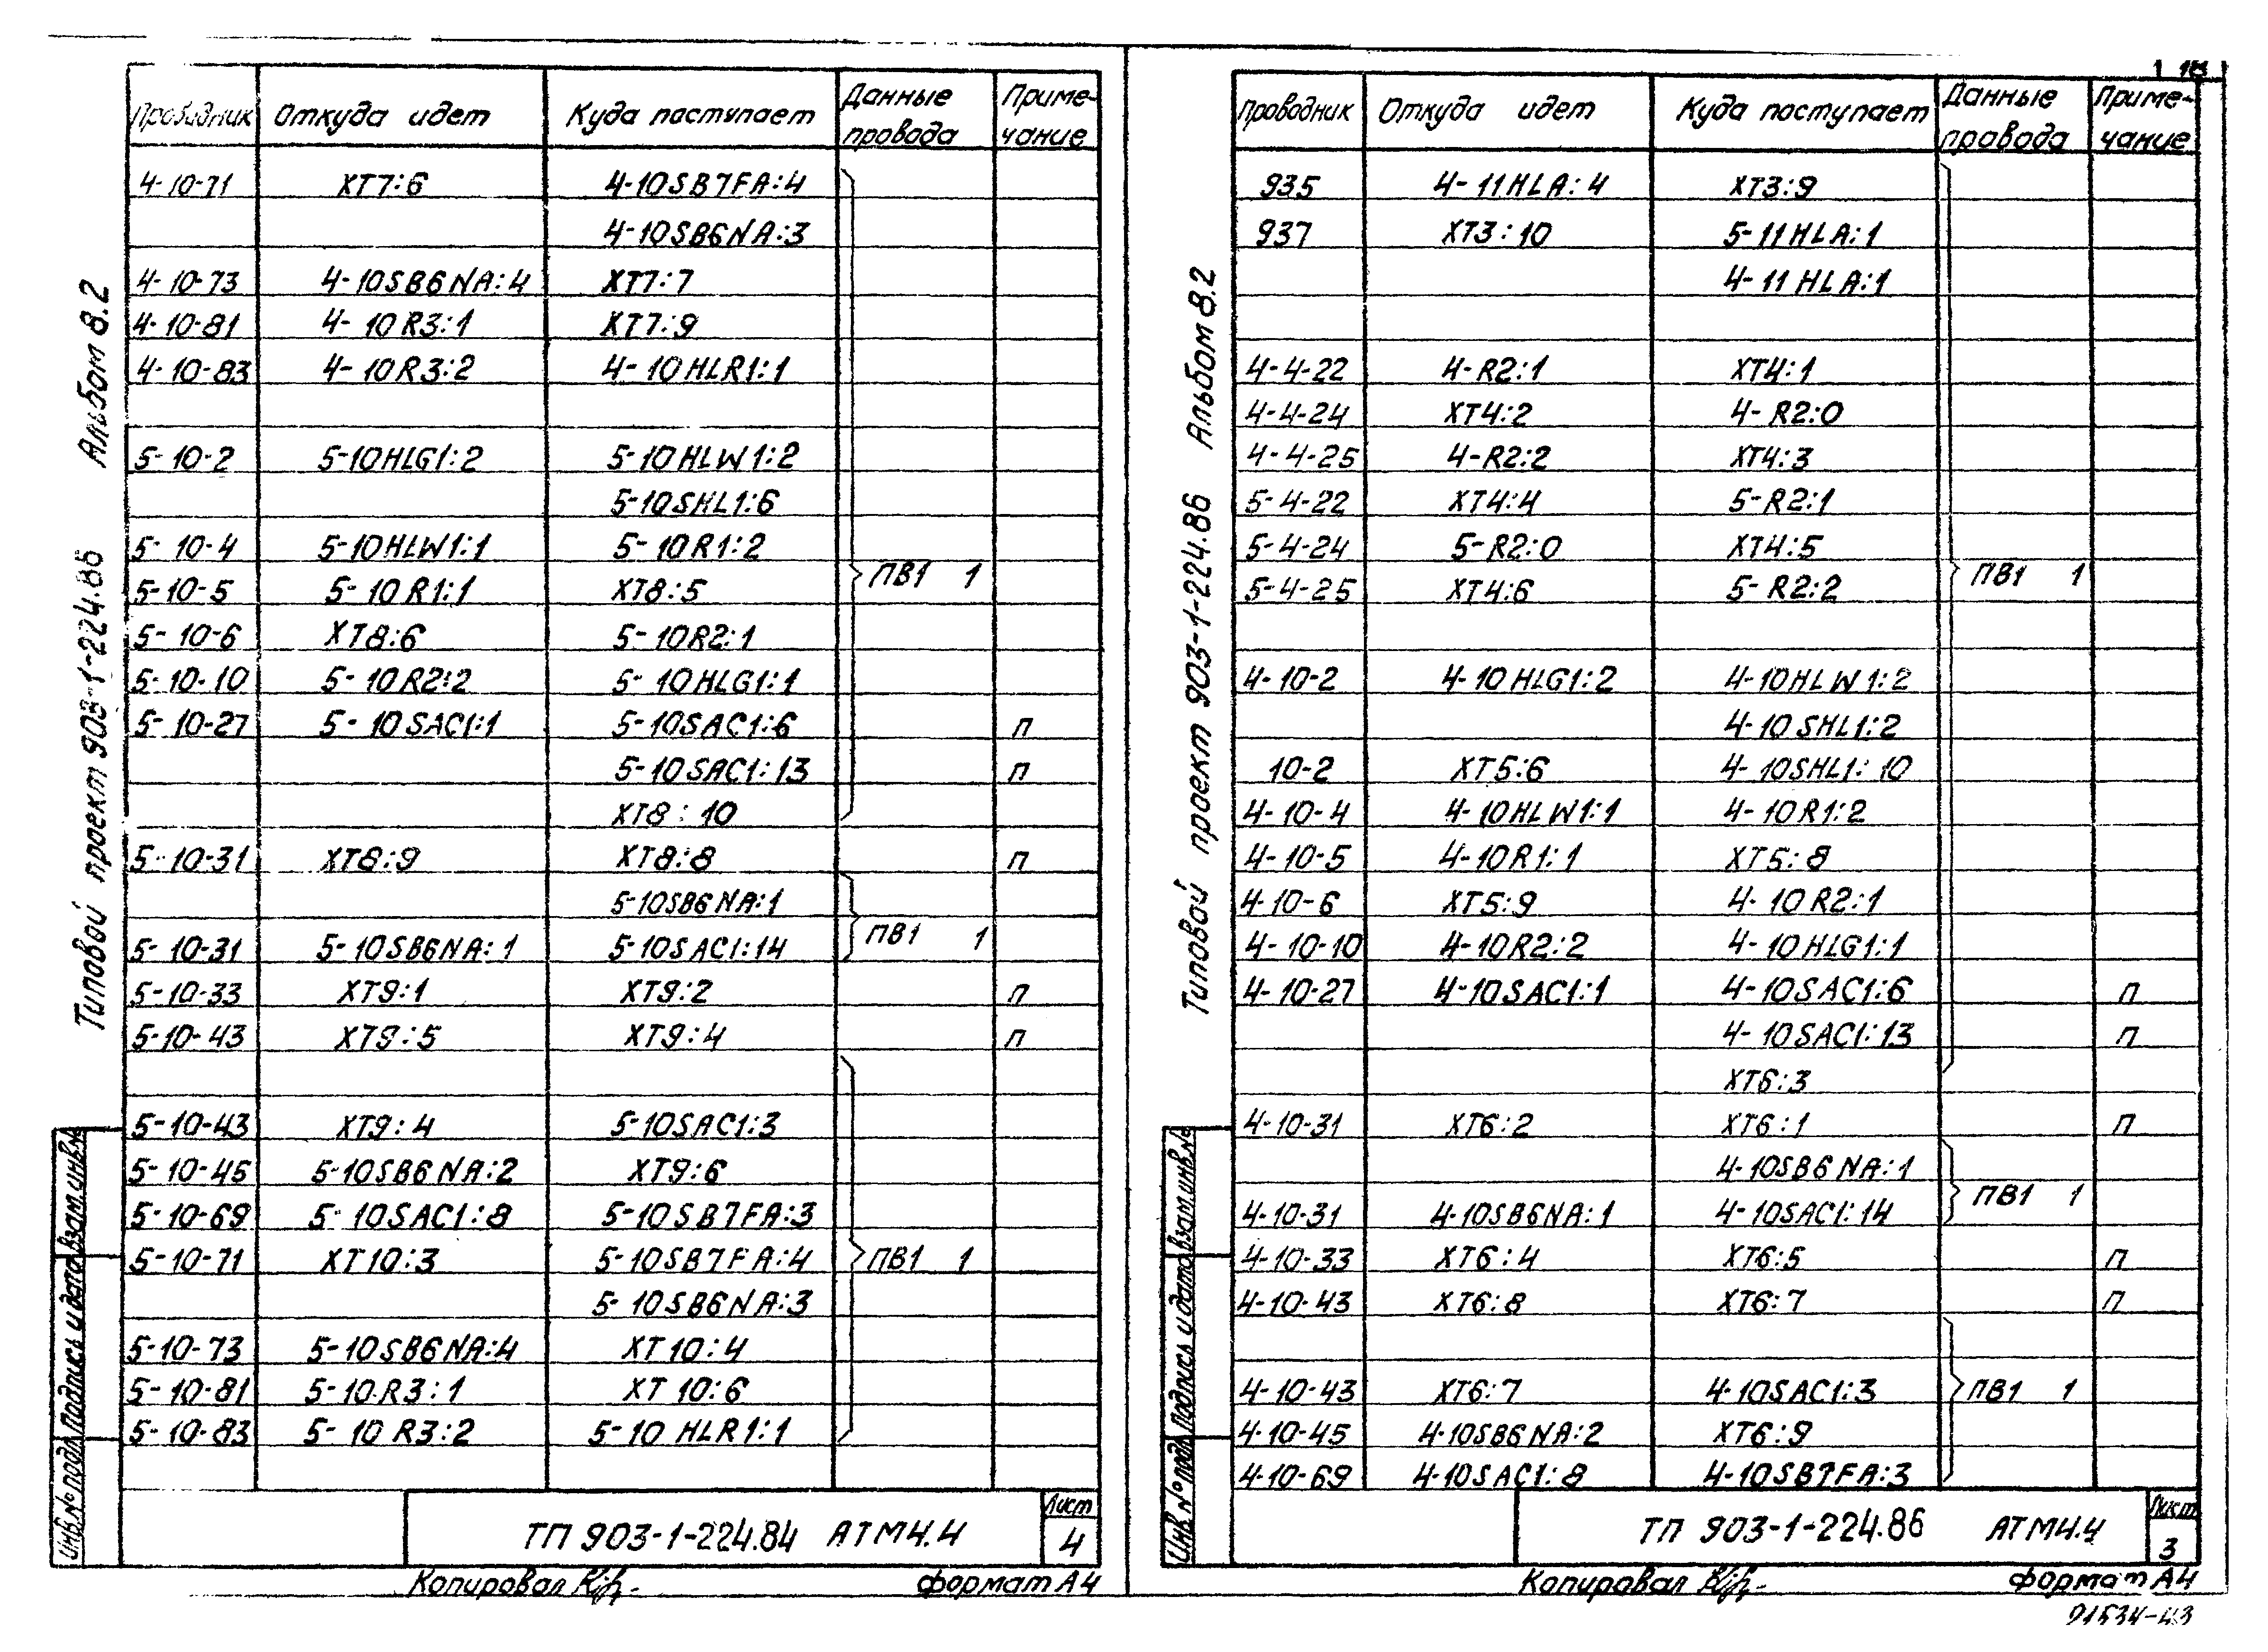 18
Альбом 8.2
Типовой проект 903-1-224.86
Проводник Откуда идет Куда поступает Данные провода Примечание
4-10-71 XT7:6 4-10SB7FA:4
4-10SB6NA:3
4-10-73 4-10SB6NA:4 XT7:7
4-10-81 4-10R3:1 XT7:9
4-10-83 4-10R3:2 4-10HLR1:1
5-10-2 5-10HLG1:2 5-10HLW1:2
5-10SHL1:6
5-10-4 5-10HLW1:1 5-10R1:2
5-10-5 5-10R1:1 XT8:5 ПВ1 1
5-10-6 XT8:6 5-10R2:1
5-10-10 5-10R2:2 5-10HLG1:1
5-10-27 5-10SAC1:1 5-10SAC1:6 п
5-10SAC1:13 п
XT8:10
5-10-31 XT8:9 XT8:8 п
5-10SB6NA:1
5-10-31 5-10SB6NA:1 5-10SAC1:14 ПВ1 1
5-10-33 XT9:1 XT9:2 п
5-10-43 XT9:5 XT9:4 п
5-10-43 XT9:4 5-10SAC1:3
5-10-45 5-10SB6NA:2 XT9:6
5-10-69 5-10SAC1:8 5-10SB7FA:3
5-10-71 XT10:3 5-10SB7FA:4 ПВ1 1
5-10SB6NA:3
5-10-73 5-10SB6NA:4 XT10:4
5-10-81 5-10R3:1 XT10:6
5-10-83 5-10R3:2 5-10HLR1:1
Инв.№ подл. Подпись и дата Взам.инв.№
ТП 903-1-224.84 АТМ4.4 Лист 4
Копировал
формат А4
Альбом 8.2
Типовой проект 903-1-224.86
Проводник Откуда идет Куда поступает Данные провода Примечание
935 4-11HLA:4 XT3:9
937 XT3:10 5-11HLA:1
4-11HLA:1
4-4-22 4-R2:1 XT4:1
4-4-24 XT4:2 4-R2:0
4-4-25 4-R2:2 XT4:3
5-4-22 XT4:4 5-R2:1
5-4-24 5-R2:0 XT4:5
5-4-25 XT4:6 5-R2:2 ПВ1 1
4-10-2 4-10HLG1:2 4-10HLW1:2
4-10SHL1:2
10-2 XT5:6 4-10SHL1:10
4-10-4 4-10HLW1:1 4-10R1:2
4-10-5 4-10R1:1 XT5:8
4-10-6 XT5:9 4-10R2:1
4-10-10 4-10R2:2 4-10HLG1:1
4-10-27 4-10SAC1:1 4-10SAC1:6 п
4-10SAC1:13 п
XT6:3
4-10-31 XT6:2 XT6:1 п
4-10SB6NA:1
4-10-31 4-10SB6NA:1 4-10SAC1:14 ПВ1 1
4-10-33 XT6:4 XT6:5 п
4-10-43 XT6:8 XT6:7 п
4-10-43 XT6:7 4-10SAC1:3 ПВ1 1
4-10-45 4-10SB6NA:2 XT6:9
4-10-69 4-10SAC1:8 4-10SB7FA:3
Инв.№ подл. Подпись и дата Взам.инв.№
ТП 903-1-224.86 АТМ4.4 Лист 3
Копировал
формат А4
21534-43